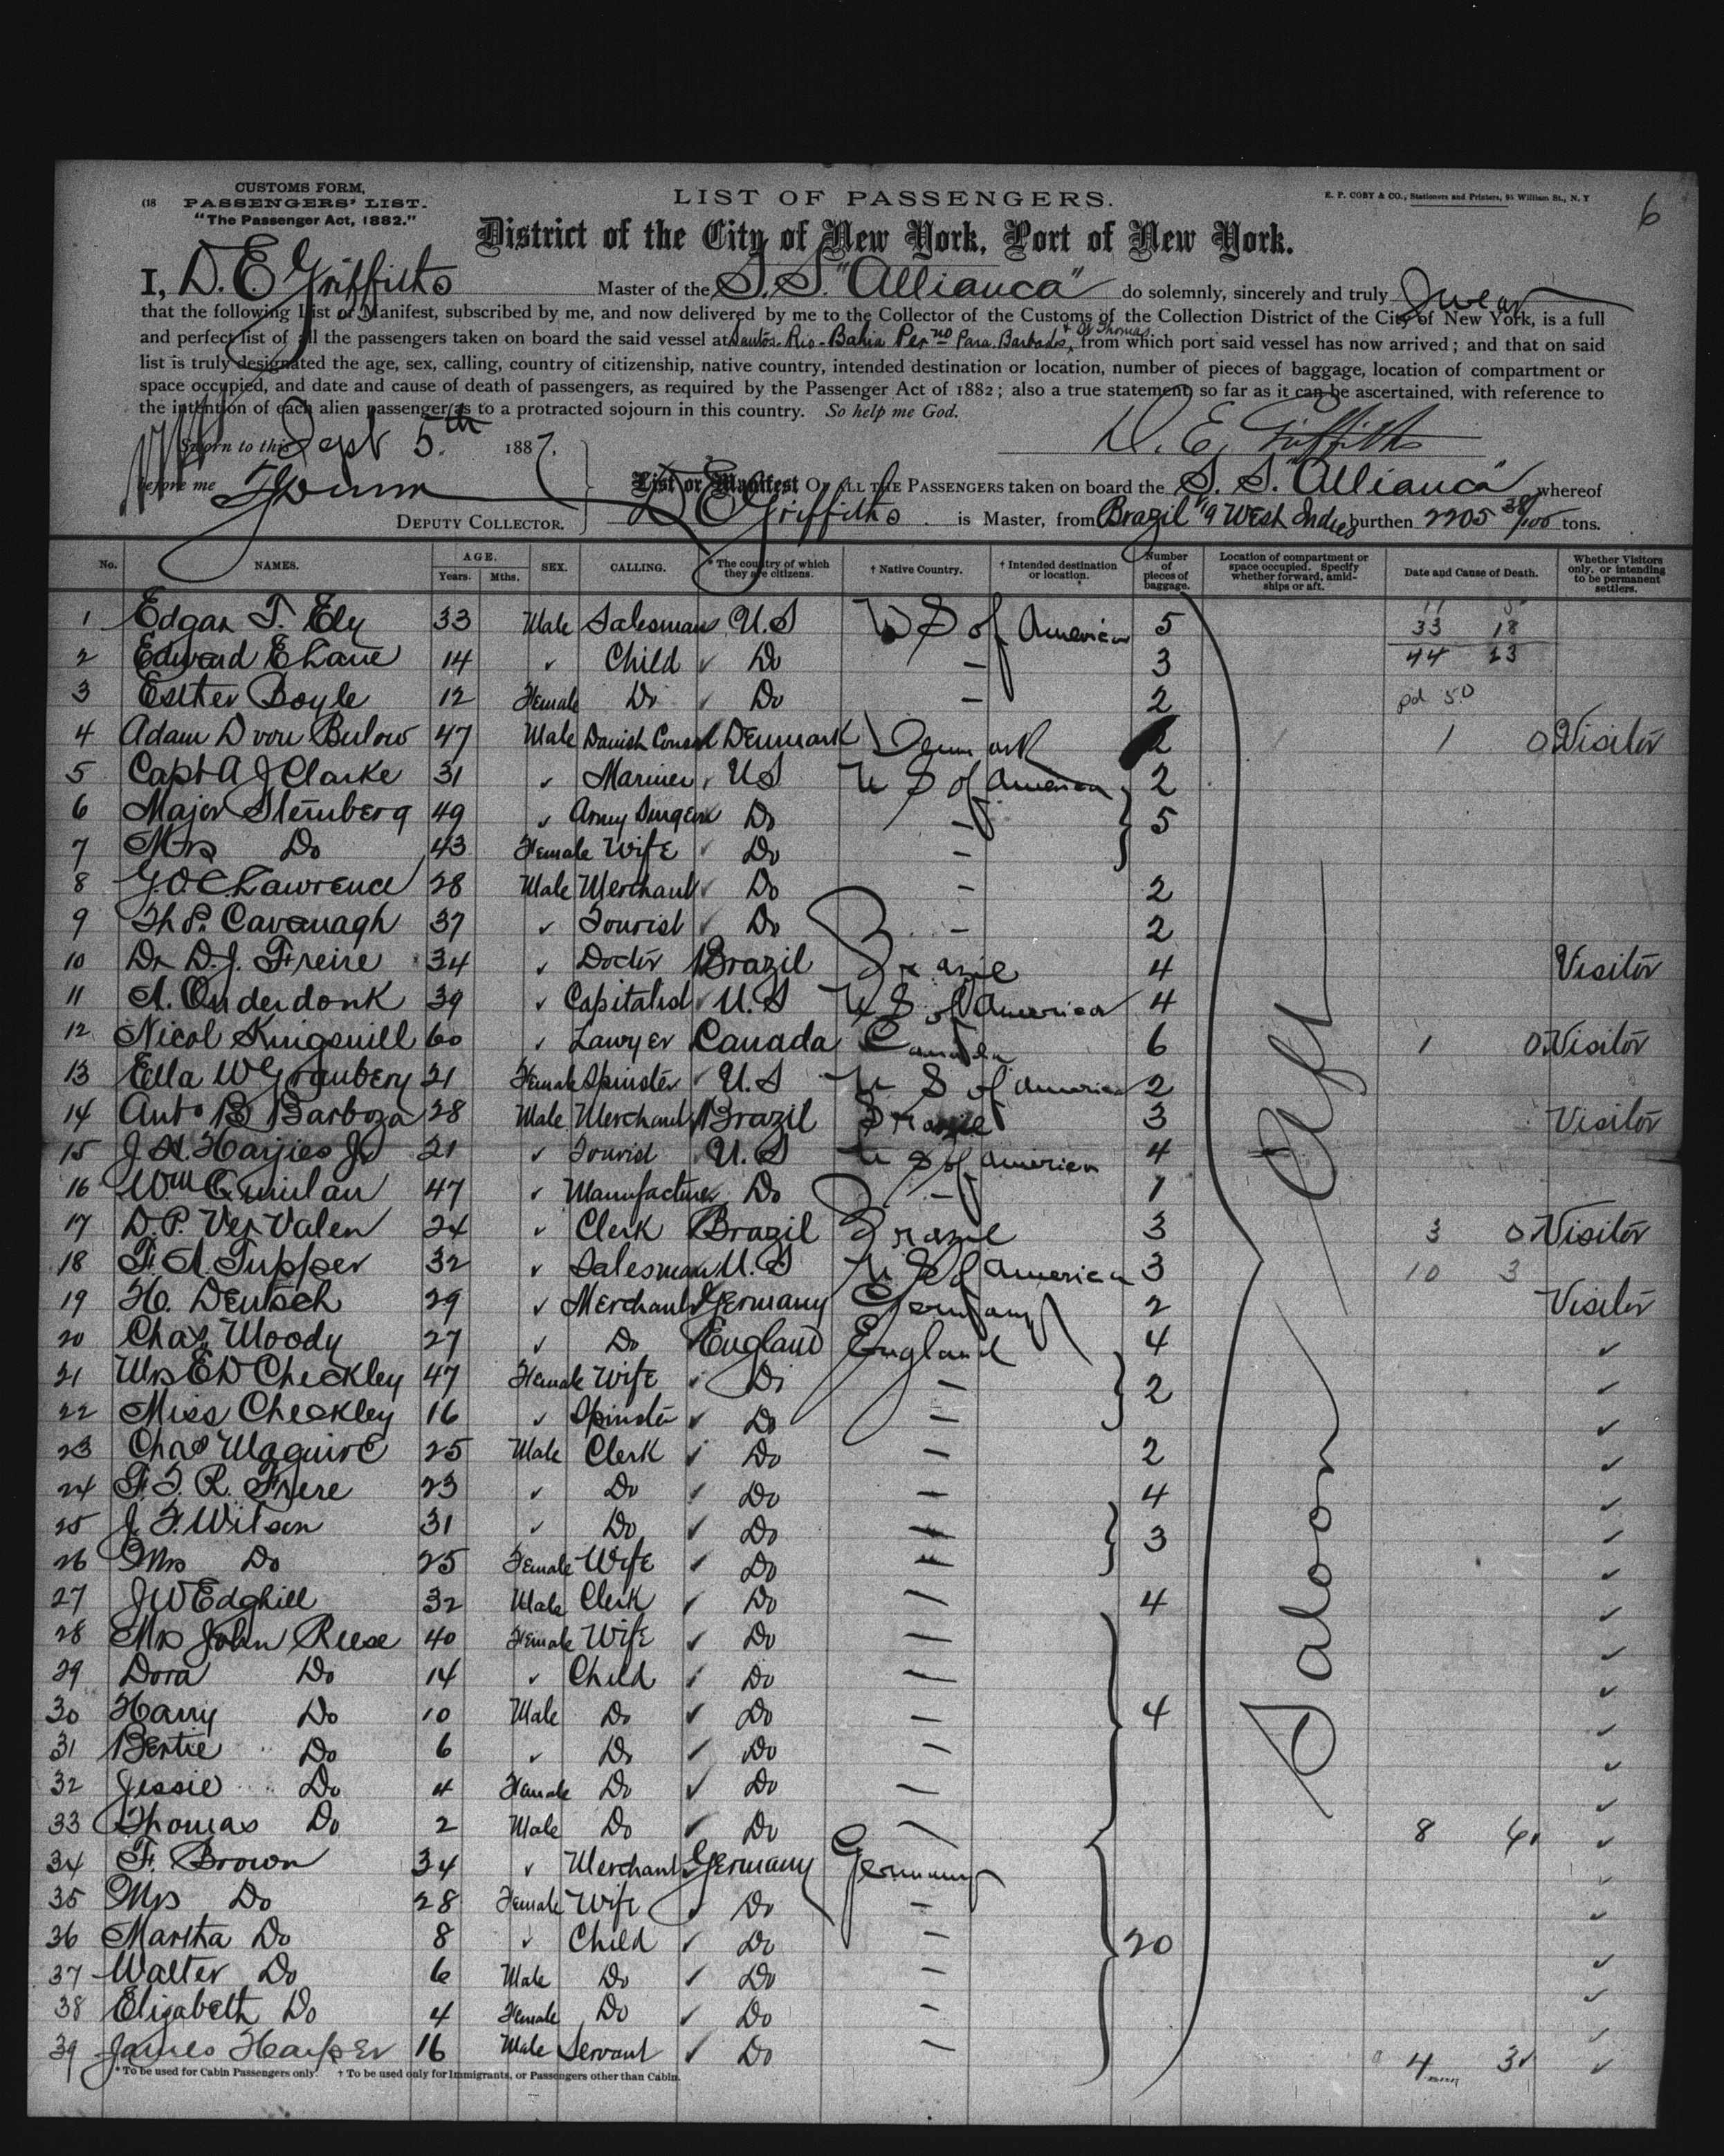 CUSTOMS FORM,
(18 PASSENGERS' LIST.
"The Passenger Act, 1882."
LIST OF PASSENGERS.
E. P. COBY & CO., Stationers and Printers, 94 William St., N. Y
6
District of the City of New York, Port of New York.
I, D. E. Griffiths Master of the S. S. "Allianca" do solemnly, sincerely and truly Swear
that the following List or Manifest, subscribed by me, and now delivered by me to the Collector of the Customs of the Collection District of the City of New York, is a full
and perfect list of all the passengers taken on board the said vessel at Santos-Rio-Bahia Per no Para. Barbados, & St Thomas. from which port said vessel has now arrived; and that on said
list is truly designated the age, sex, calling, country of citizenship, native country, intended destination or location, number of pieces of baggage, location of compartment or
space occupied, and date and cause of death of passengers, as required by the Passenger Act of 1882; also a true statement, so far as it can be ascertained, with reference to
the intention of each alien passenger as to a protracted sojourn in this country. So help me God.
Sworn to this Sept 5th 1887. D. E. Griffiths
before me
List or Manifest OF ALL THE PASSENGERS taken on board the S. S. "Allianca" whereof
DEPUTY COLLECTOR. D E Griffiths is Master, from Brazil & West Indies burthen 2205 38/100 tons.
No. NAMES. AGE. Years. Mths. SEX. CALLING. * The country of which they are citizens. † Native Country. † Intended destination or location. Number of pieces of baggage. Location of compartment or space occupied. Specify whether forward, amidships or aft. Date and Cause of Death. Whether Visitors only, or intending to be permanent settlers.
1 Edgar T. Ely 33 Male Salesman U.S U S of America 5 33 18
2 Edward E Lane 14 ✓ Child ✓ Do — 3 44 23
3 Esther Boyle 12 Female Do ✓ Do — 2 pd 50
4 Adam D von Bulow 47 Male Danish Consul Denmark Denmark 2 1 0 Visitor
5 Capt A J Clarke 31 ✓ Mariner ✓ US U S of America 2
6 Major Sternberg 49 ✓ Army Surgeon Do — 5
7 Mrs Do 43 Female Wife ✓ Do —
8 G.O.C. Lawrence 28 Male Merchant ✓ Do — 2
9 Th S. Cavanagh 37 ✓ Tourist ✓ Do — 2
10 Dr D.J. Freire 34 ✓ Doctor Brazil Brazil 4 Visitor
11 A. Onderdonk 39 ✓ Capitalist ✓ U.S U S of America 4
12 Nicol Kingsmill 60 ✓ Lawyer Canada Canada 6 1 0 Visitor
13 Ella W Granbery 21 Female Spinster ✓ U.S U S of America 2
14 Anto B Barboza 28 Male Merchant Brazil Brazil 3 Visitor
15 J. H. Harjies Jr 21 ✓ Tourist U.S U S of America 4
16 Wm Quinlan 47 ✓ Manufacturer Do — 1
17 D. P. Ver Valen 24 ✓ Clerk Brazil Brazil 3 3 0 Visitor
18 F. A. Tupper 32 ✓ Salesman U.S U S of America 3 10 3
19 H. Deutsch 29 ✓ Merchant Germany Germany 2 Visitor
20 Chas. Moody 27 ✓ Do England England 4 ✓
21 Mrs E D Checkley 47 Female Wife ✓ Do — 2 ✓
22 Miss Checkley 16 ✓ Spinster ✓ Do — ✓
23 Chas Maguire 25 Male Clerk ✓ Do — 2 ✓
24 F. T. R. Frere 23 ✓ Do ✓ Do — 4 ✓
25 J. F. Wilson 31 ✓ Do ✓ Do — 3 ✓
26 Mrs Do 25 Female Wife ✓ Do — ✓
27 J W Edghill 32 Male Clerk ✓ Do — 4 ✓
28 Mrs John Reese 40 Female Wife ✓ Do — ✓
29 Dora Do 14 ✓ Child ✓ Do — ✓
30 Harry Do 10 Male Do ✓ Do — 4 ✓
31 Bertie Do 6 ✓ Do ✓ Do — ✓
32 Jessie Do 4 Female Do ✓ Do — ✓
33 Thomas Do 2 Male Do ✓ Do — 8 6 ✓
34 F. Brown 34 ✓ Merchant Germany Germany ✓
35 Mrs Do 28 Female Wife ✓ Do — ✓
36 Martha Do 8 ✓ Child ✓ Do — 20 ✓
37 Walter Do 6 Male Do ✓ Do — ✓
38 Elizabeth Do 4 Female Do ✓ Do — ✓
39 James Harper 16 Male Servant ✓ Do — 4 3 ✓
Saloon Aft
* To be used for Cabin Passengers only. † To be used only for Immigrants, or Passengers other than Cabin.